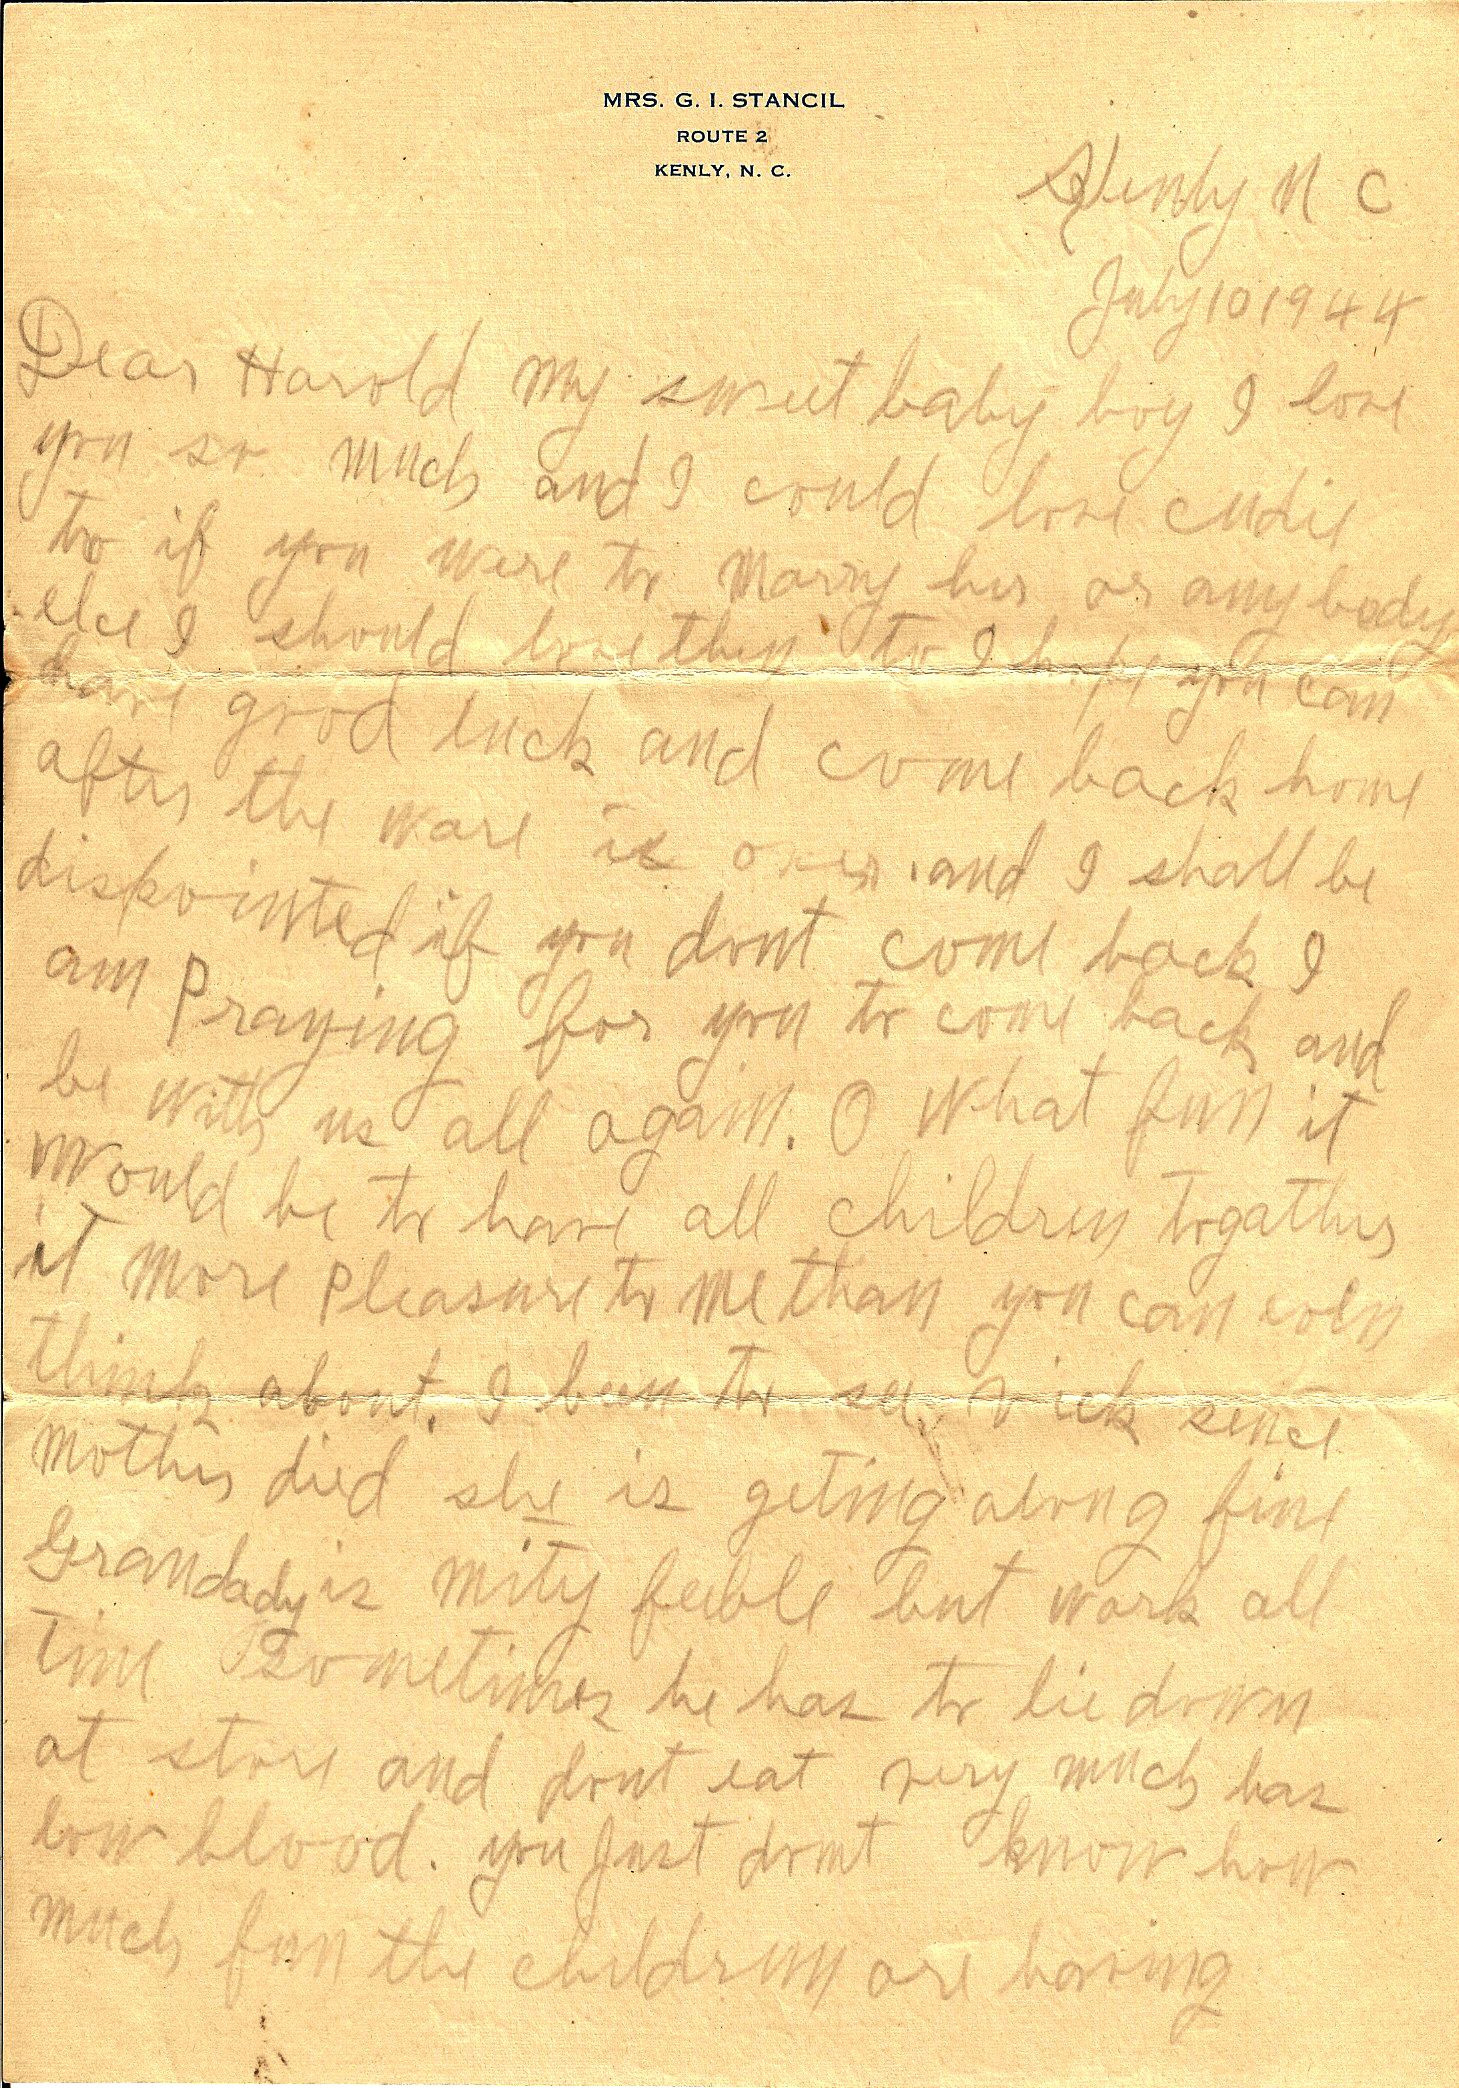 MRS. G. I. STANCIL
ROUTE 2
KENLY, N. C.
Kenly N C
July 10 1944
Dear Harold My sweet baby boy I love
you so much and I could love
too if you were to Marry her or any body
elce I should love them to I hope you can
have good luck and come back home
after the ware is over. and I shall be
dispointed if you dont come back I
am Praying for you to come back and
be with us all again. O what fun it
would be to have all children togather
it more Pleasure to me than you can even
think about. I been to see Vick sence
Mother died she is geting along fine
Grandady is mity feeble but work all
time Sometimes he has to lie down
at store and dont eat very much has
low blood. you Just dont know how
much fun the children are having